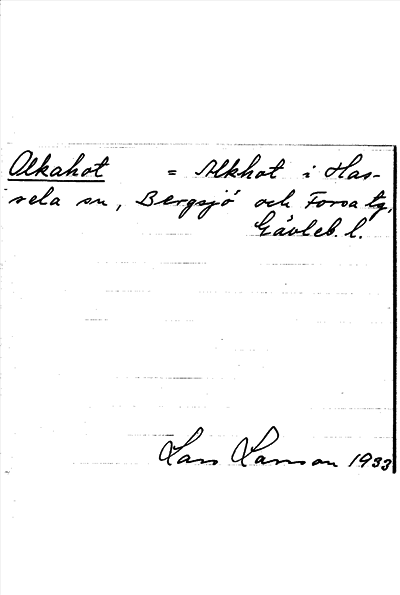 Alkahot = Alkhot i Has-
sela sn, Bergsjö och Forsa tg,
Gävleb. l.
Lars Larsson 1933